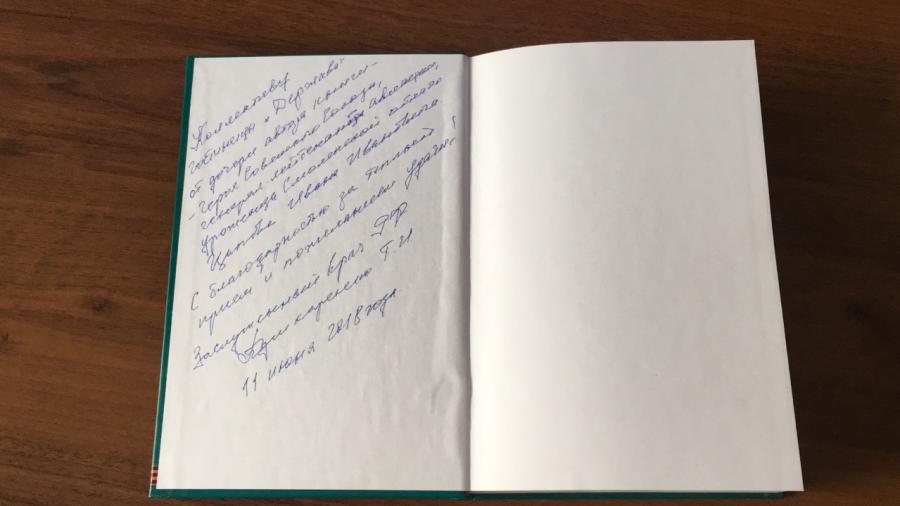 Коллективу
гостиницы "Держава"
от дочери автора книги -
- Героя Советского Союза,
генерал лейтенанта авиации,
уроженца Смоленской области
Ивана Ивановича
С благодарностью за теплый
прием и пожеланием удачи!
Заслуженный врач РФ
Т.И
11 июня 2018 года